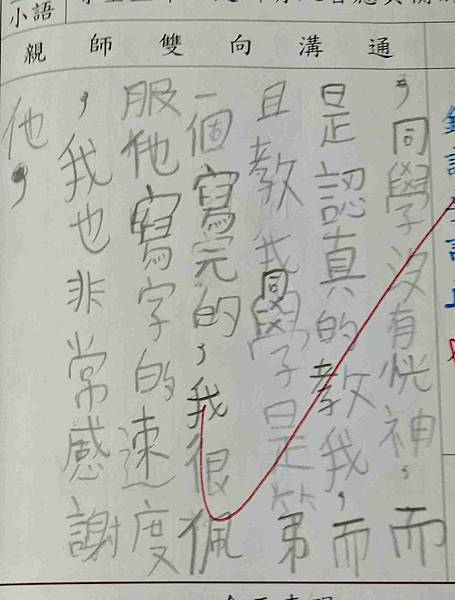 小語
親師雙向溝通
，同學沒有恍神，而
是認真的教我，而
且教我同學是第
一個寫完的，我很佩
服他寫字的速度
，我也非常感謝
他，